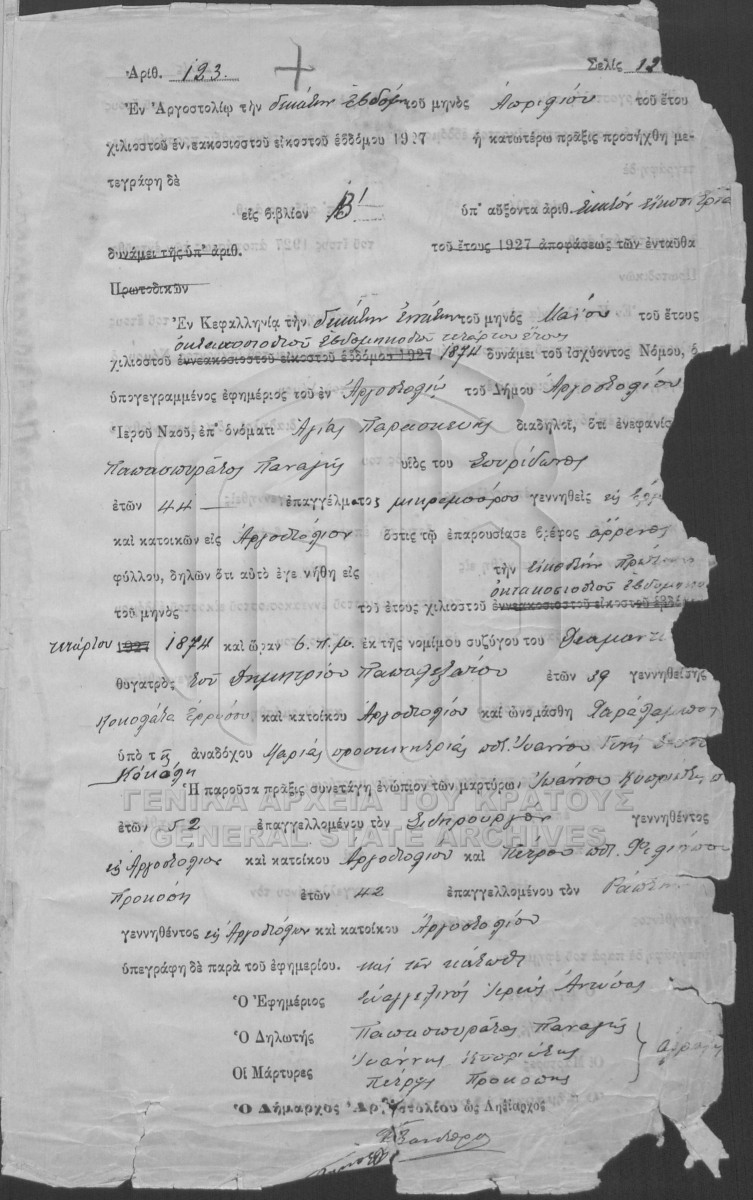 Ἀριθ. 123. Σελὶς 12
Ἐν Ἀργοστολίῳ τὴν δεκάτην ἑβδόμην τοῦ μηνὸς Ἀπριλίου τοῦ ἔτους
χιλιοστοῦ ἐννεακοσιοστοῦ εἰκοστοῦ ἑβδόμου 1927 ἡ κατωτέρω πρᾶξις προσήχθη με-
τεγράφη δὲ
εἰς βιβλίον Β' ὑπ' αὔξοντα ἀριθ. ἑκατὸν εἴκοσι τρία
δυνάμει τῆς ὑπ' ἀριθ. τοῦ ἔτους 1927 ἀποφάσεως τῶν ἐνταῦθα
Πρωτοδικῶν
Ἐν Κεφαλληνίᾳ τὴν δεκάτην ἐνάτην τοῦ μηνὸς Μαΐου τοῦ ἔτους
ὀκτακοσιοστοῦ ἑβδομηκοστοῦ τετάρτου ἔτους
χιλιοστοῦ ἐννεακοσιοστοῦ εἰκοστοῦ ἑβδόμου 1927 1874 δυνάμει τοῦ ἰσχύοντος Νόμου, ὁ
ὑπογεγραμμένος ἐφημέριος τοῦ ἐν Ἀργοστολίῳ τοῦ Δήμου Ἀργοστολίου
Ἱεροῦ Ναοῦ, ἐπ' ὀνόματι Ἁγίας Παρασκευῆς διαδηλοῖ, ὅτι ἐνεφανίσ
Παπασπυράτος Παναγῆς υἱὸς τοῦ Σπυρίδωνος
ἐτῶν 44 ἐπαγγέλματος μικρεμπόρου γεννηθεὶς εἰς
καὶ κατοικῶν εἰς Ἀργοστόλιον ὅστις τῷ ἐπαρουσίασε βρέφος ἄρρενος
φύλλου, δηλῶν ὅτι αὐτὸ ἐγεννήθη εἰς τὴν εἰκοστὴν πρώτην
ὀκτακοσιοστοῦ ἑβδομηκοσ
τοῦ μηνὸς τοῦ ἔτους χιλιοστοῦ ἐννεακοσιοστοῦ εἰκοστοῦ ἑβδόμ
τετάρτου 1927 1874 καὶ ὥραν 6 π.μ. ἐκ τῆς νομίμου συζύγου του Διαμαντ
θυγατρὸς τοῦ Δημητρίου Παπαδεβάτου ἐτῶν 39 γεννηθείσης
καὶ κατοίκου Ἀργοστολίου καὶ ὠνομάσθη Χαράλαμπος
ὑπὸ τῆς ἀναδόχου Μαρίας ποτ. Ἰωάννου
Κόκαλη
Ἡ παροῦσα πρᾶξις συνετάγη ἐνώπιον τῶν μαρτύρων Ἰωάννου
ΓΕΝΙΚΑ ΑΡΧΕΙΑ ΤΟΥ ΚΡΑΤΟΥΣ
ἐτῶν 52 ἐπαγγελλομένου τὸν Σιδηρουργὸν γεννηθέντος
GENERAL STATE ARCHIVES
εἰς Ἀργοστόλιον καὶ κατοίκου Ἀργοστολίου καὶ Πέτρου ποτ.
Προκόπη ἐτῶν 42 ἐπαγγελλομένου τὸν Ράπτην
γεννηθέντος εἰς Ἀργοστόλιον καὶ κατοίκου Ἀργοστολίου
ὑπεγράφη δὲ παρὰ τοῦ ἐφημερίου. καὶ τῶν κάτωθι
Ὁ Ἐφημέριος Εὐαγγελινὸς Ἱερεὺς
Ὁ Δηλωτὴς Παπασπυράτος Παναγῆς
Οἱ Μάρτυρες Ἰωάννης
Πέτρος Προκόπης
Ὁ Δήμαρχος Ἀργοστολίου ὡς Ληξίαρχος